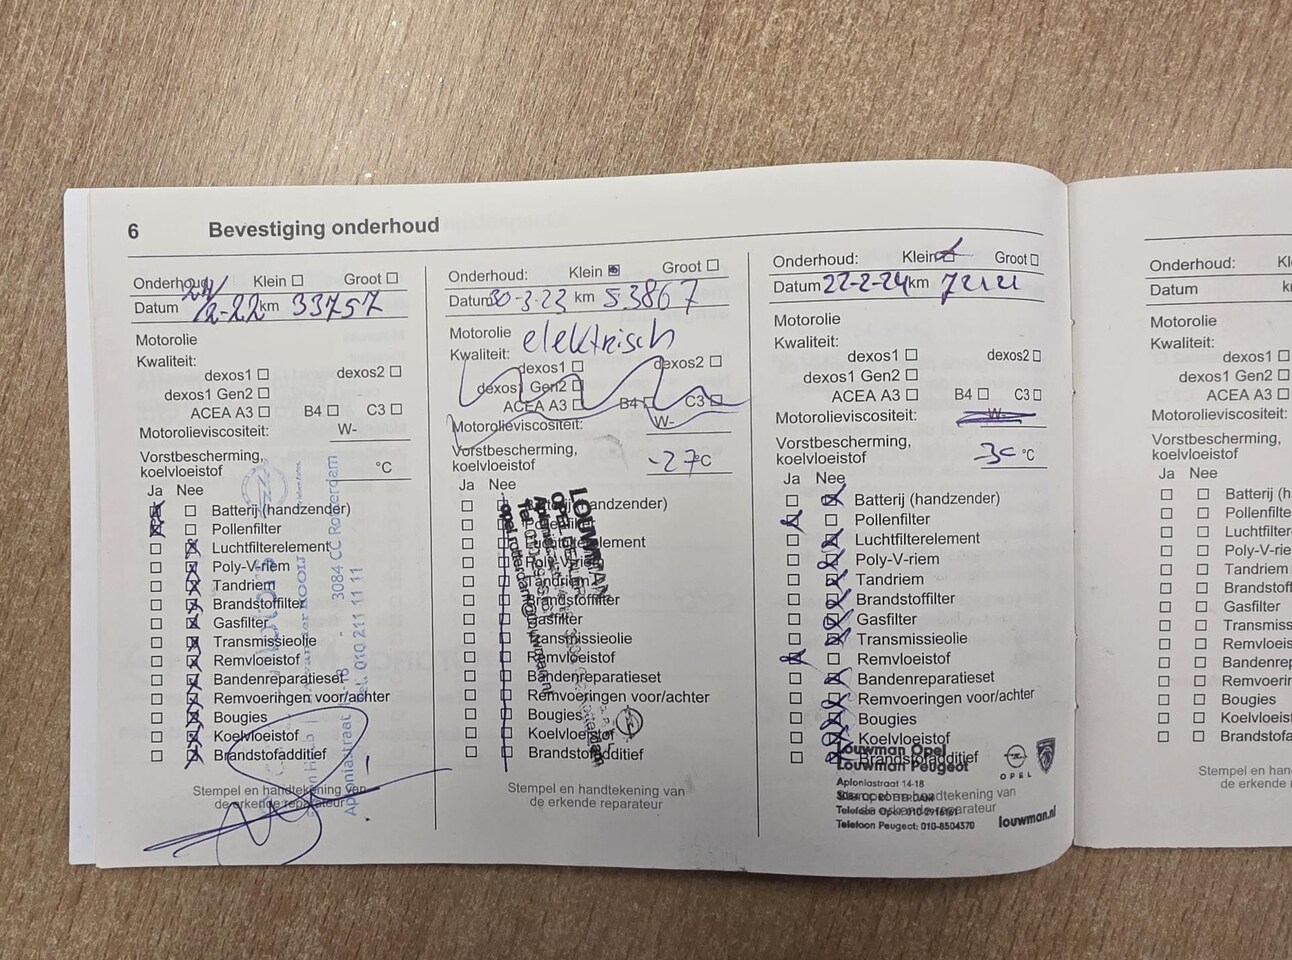 6 Bevestiging onderhoud
Onderhoud: Klein ☐ Groot ☐
Datum 24/2-22 km 33757
Motorolie
Kwaliteit:
dexos1 ☐ dexos2 ☐
dexos1 Gen2 ☐
ACEA A3 ☐ B4 ☐ C3 ☐
Motorolieviscositeit: W-
Vorstbescherming,
koelvloeistof °C
Ja Nee
Batterij (handzender)
Pollenfilter
Luchtfilterelement
Poly-V-riem
Tandriem
Brandstoffilter
Gasfilter
Transmissieolie
Remvloeistof
Bandenreparatieset
Remvoeringen voor/achter
Bougies
Koelvloeistof
Brandstofadditief
Stempel en handtekening van
de erkende reparateur
van der KOOIJ
Aploniastraat -18 - 3084 CC Rotterdam
Tel. 010 211 11 11
Onderhoud: Klein ☒ Groot ☐
Datum 30-3-23 km 53867
Motorolie
elektrisch
Kwaliteit:
dexos1 ☐ dexos2 ☐
dexos1 Gen2 ☐
ACEA A3 ☐ B4 ☐ C3 ☐
Motorolieviscositeit: W-
Vorstbescherming,
koelvloeistof -27 °C
Ja Nee
Batterij (handzender)
Pollenfilter
Luchtfilterelement
Poly-V-riem
Tandriem
Brandstoffilter
Gasfilter
Transmissieolie
Remvloeistof
Bandenreparatieset
Remvoeringen voor/achter
Bougies
Koelvloeistof
Brandstofadditief
Stempel en handtekening van
de erkende reparateur
LOUWMAN
Onderhoud: Klein ☒ Groot ☐
Datum 22-2-24 km
Motorolie
Kwaliteit:
dexos1 ☐ dexos2 ☐
dexos1 Gen2 ☐
ACEA A3 ☐ B4 ☐ C3 ☐
Motorolieviscositeit: W-
Vorstbescherming,
koelvloeistof °C
Ja Nee
Batterij (handzender)
Pollenfilter
Luchtfilterelement
Poly-V-riem
Tandriem
Brandstoffilter
Gasfilter
Transmissieolie
Remvloeistof
Bandenreparatieset
Remvoeringen voor/achter
Bougies
Koelvloeistof
Brandstofadditief
Louwman Opel
Louwman Peugeot
OPEL
Aploniastraat 14-18
3084 CC ROTTERDAM
Stempel en handtekening van
de erkende reparateur
Telefoon Opel: 010-2916161
Telefoon Peugeot: 010-8504370
louwman.nl
Onderhoud: Kl
Datum k
Motorolie
Kwaliteit:
dexos1 ☐
dexos1 Gen2 ☐
ACEA A3 ☐
Motorolieviscositeit:
Vorstbescherming,
koelvloeistof
Ja Nee
Batterij (h
Pollenfilte
Luchtfilter
Poly-V-rie
Tandriem
Brandstof
Gasfilter
Transmiss
Remvloeis
Bandenrep
Remvoerin
Bougies
Koelvloeist
Brandstofa
Stempel en han
de erkende